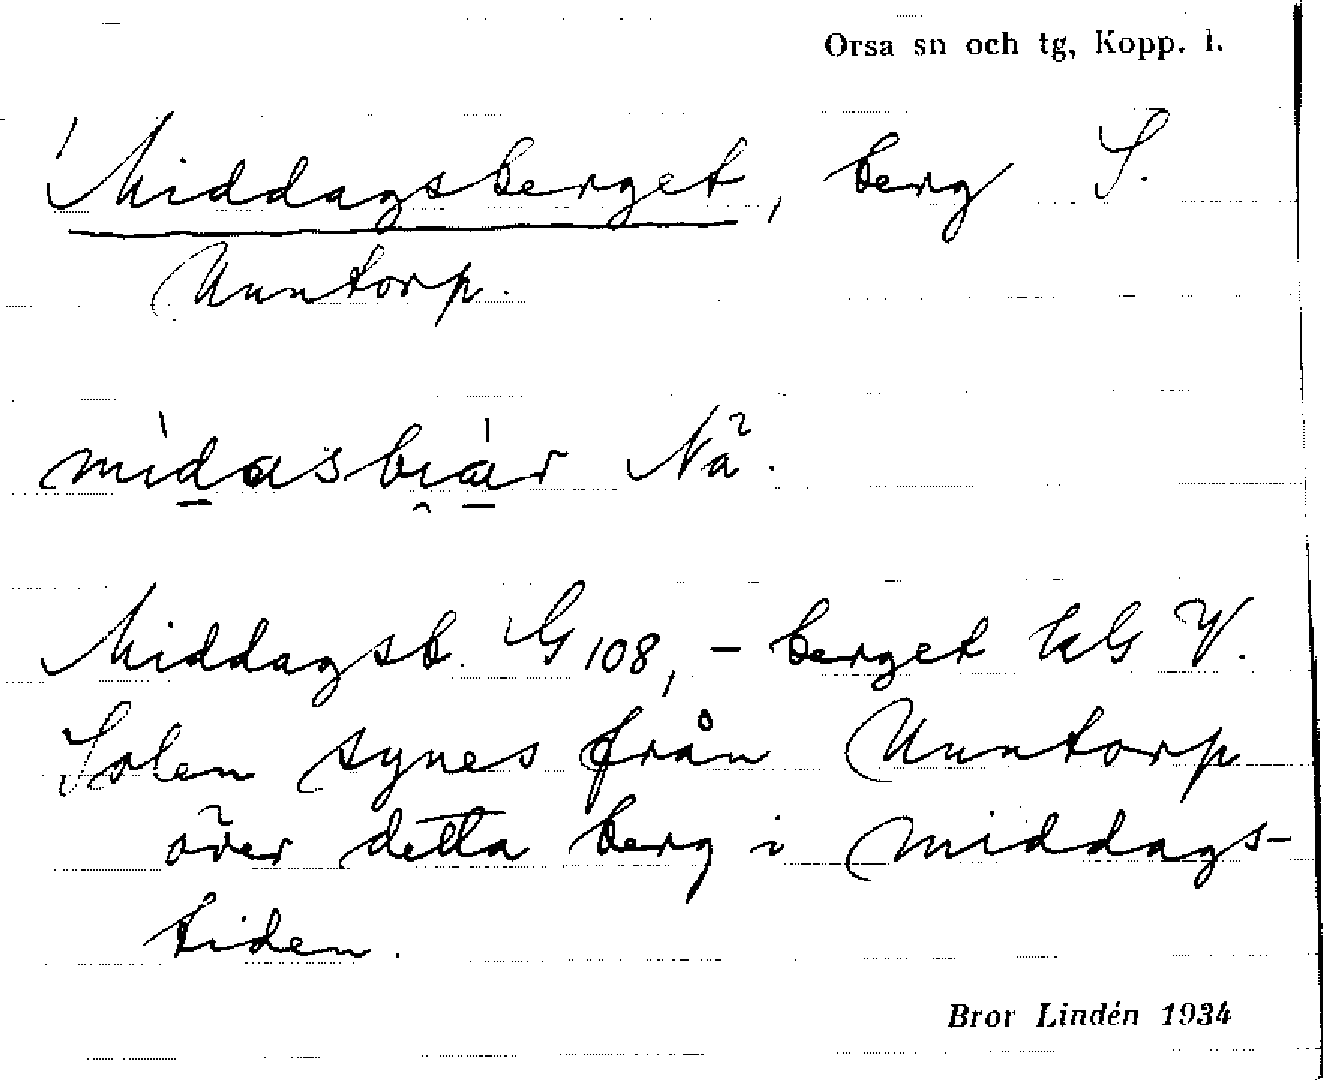 Orsa sn och tg, Kopp. l.
Middagsberget, berg S.
Unntorp.
mìdasbiár Nä².
Middagsb. G 108, - berget kG V.
Solen synes från Unntorp
över detta berg i middags-
tiden.
Bror Lindén 1934